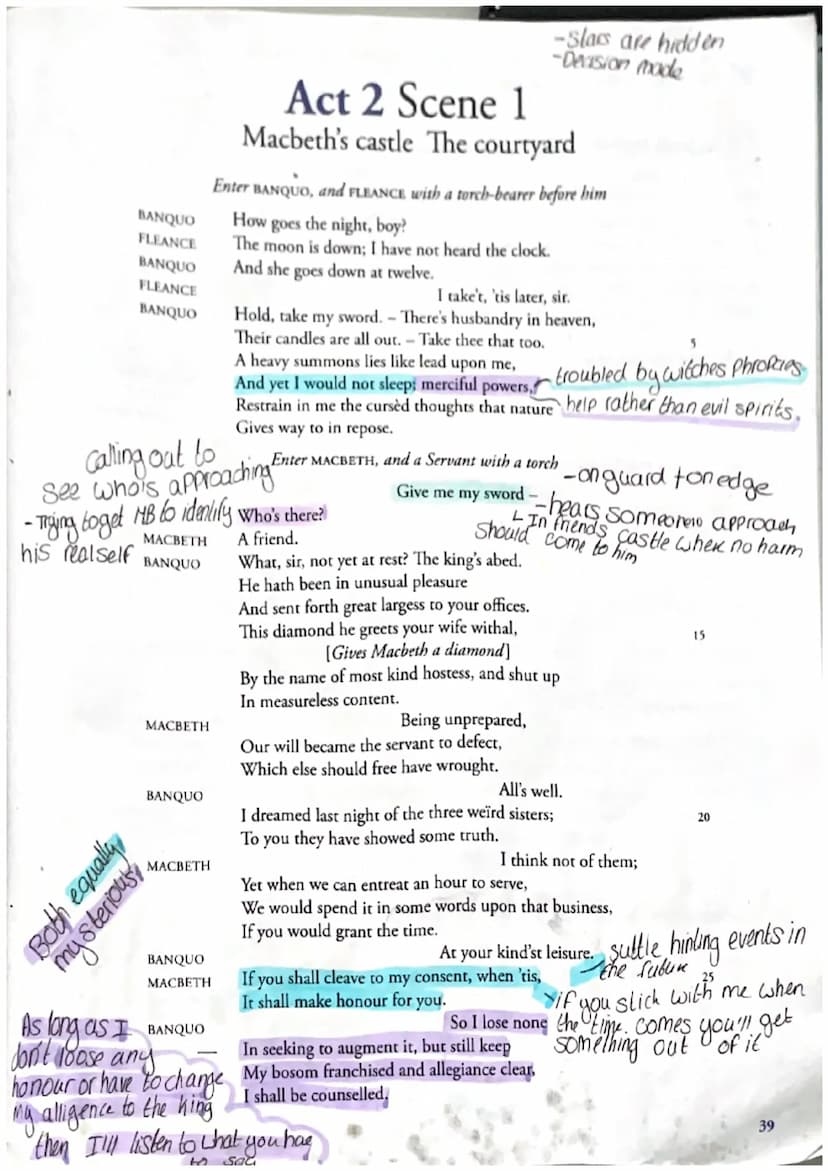 -Stars are hidden
-Decision made
Act 2 Scene 1
Macbeth's castle The courtyard
Enter BANQUO, and FLEANCE with a torch-bearer before him
BANQUO How goes the night, boy?
FLEANCE The moon is down; I have not heard the clock.
BANQUO And she goes down at twelve.
FLEANCE I take't, 'tis later, sir.
BANQUO Hold, take my sword. – There's husbandry in heaven,
Their candles are all out. – Take thee that too.
5
A heavy summons lies like lead upon me,
And yet I would not sleep; merciful powers,
troubled by witches phropcies.
Restrain in me the cursèd thoughts that nature
help rather than evil spirits.
Gives way to in repose.
Enter MACBETH, and a Servant with a torch
Calling out to
see who's approaching
- Trying to get MB to identify
his real self
Give me my sword –
-on guard + on edge
-hears someone approach
In friends castle when no harm
should come to him
Who's there?
MACBETH A friend.
BANQUO What, sir, not yet at rest? The king's abed.
He hath been in unusual pleasure
And sent forth great largess to your offices.
This diamond he greets your wife withal, 15
[Gives Macbeth a diamond]
By the name of most kind hostess, and shut up
In measureless content.
MACBETH Being unprepared,
Our will became the servant to defect,
Which else should free have wrought.
BANQUO All's well.
I dreamed last night of the three weïrd sisters; 20
To you they have showed some truth.
MACBETH I think not of them;
Yet when we can entreat an hour to serve,
We would spend it in some words upon that business,
If you would grant the time.
Both equally
mysterious
BANQUO At your kind'st leisure.
suttle hinting events in
the future
MACBETH If you shall cleave to my consent, when 'tis, 25
It shall make honour for you.
if you stick with me when
the time. comes you'll get
something out of it
BANQUO So I lose none
In seeking to augment it, but still keep
My bosom franchised and allegiance clear,
I shall be counselled.
As long as I
don't loose any
honour or have to change
my alligence to the king
then I'll listen to what you hae
to say
39